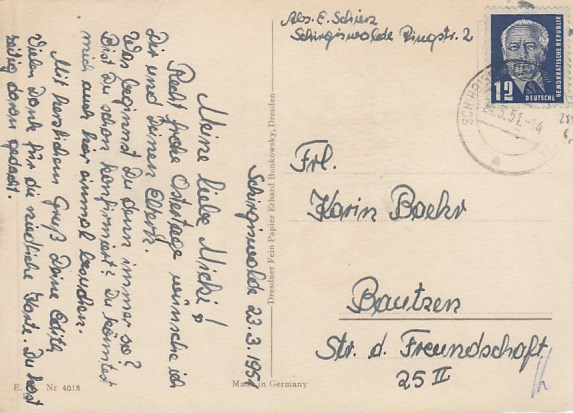 Abs. E. Schierz
Schirgiswalde Ringstr. 2
12
DEUTSCHE
DEMOKRATISCHE REPUBLIK
24.3.51.-14
Schirgiswalde 23.3.1951
Meine liebe Micki!
Recht frohe Ostertage wünsche ich
Dir und Deinen Eltern.
Was beginnst Du denn immer so?
Bist Du schon konfirmiert? Du könntest
mich auch hier einmal besuchen.
Mit herzlichem Gruß Deine Edith
Vielen Dank für die niedliche Karte. Du hast
zeitig daran gedacht.
Dresdner Fein Papier Erhard Bunkowsky, Dresden
Frl.
Karin Boehr
Bautzen
Str. d. Freundschaft
25 II
Nr 4018
Made in Germany